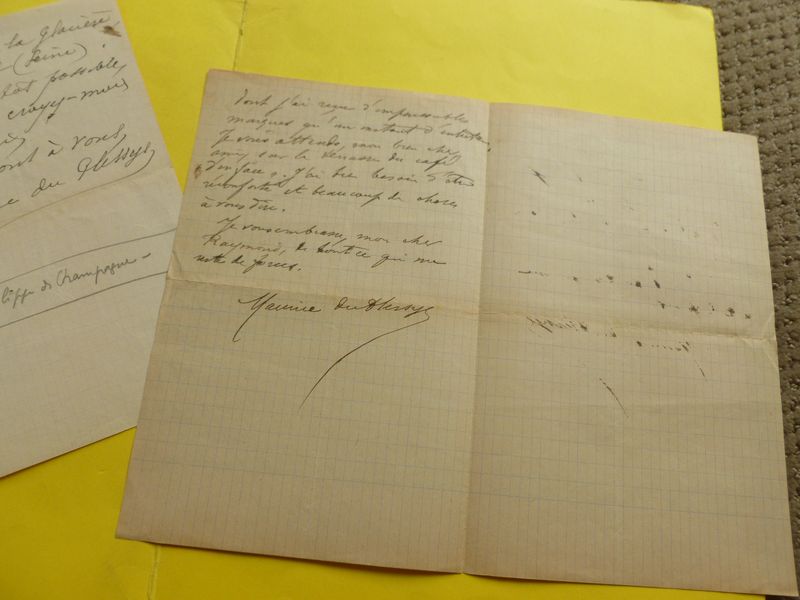 la Glacière
(Seine)
tôt possible,
croyez-moi
ont à vous
du Plessys
lippe de Champagne -
dont j'ai reçu d'impossibles
marques qu'un instant d'
Je vous attends, mon bien cher
ami, sur la terrasse du café
d'en face. J'ai bien besoin d'être
réconforté et beaucoup de choses
à vous dire.
Je vous embrasse, mon cher
Raymond, de tout ce qui me
reste de forces.
Maurice du Plessys